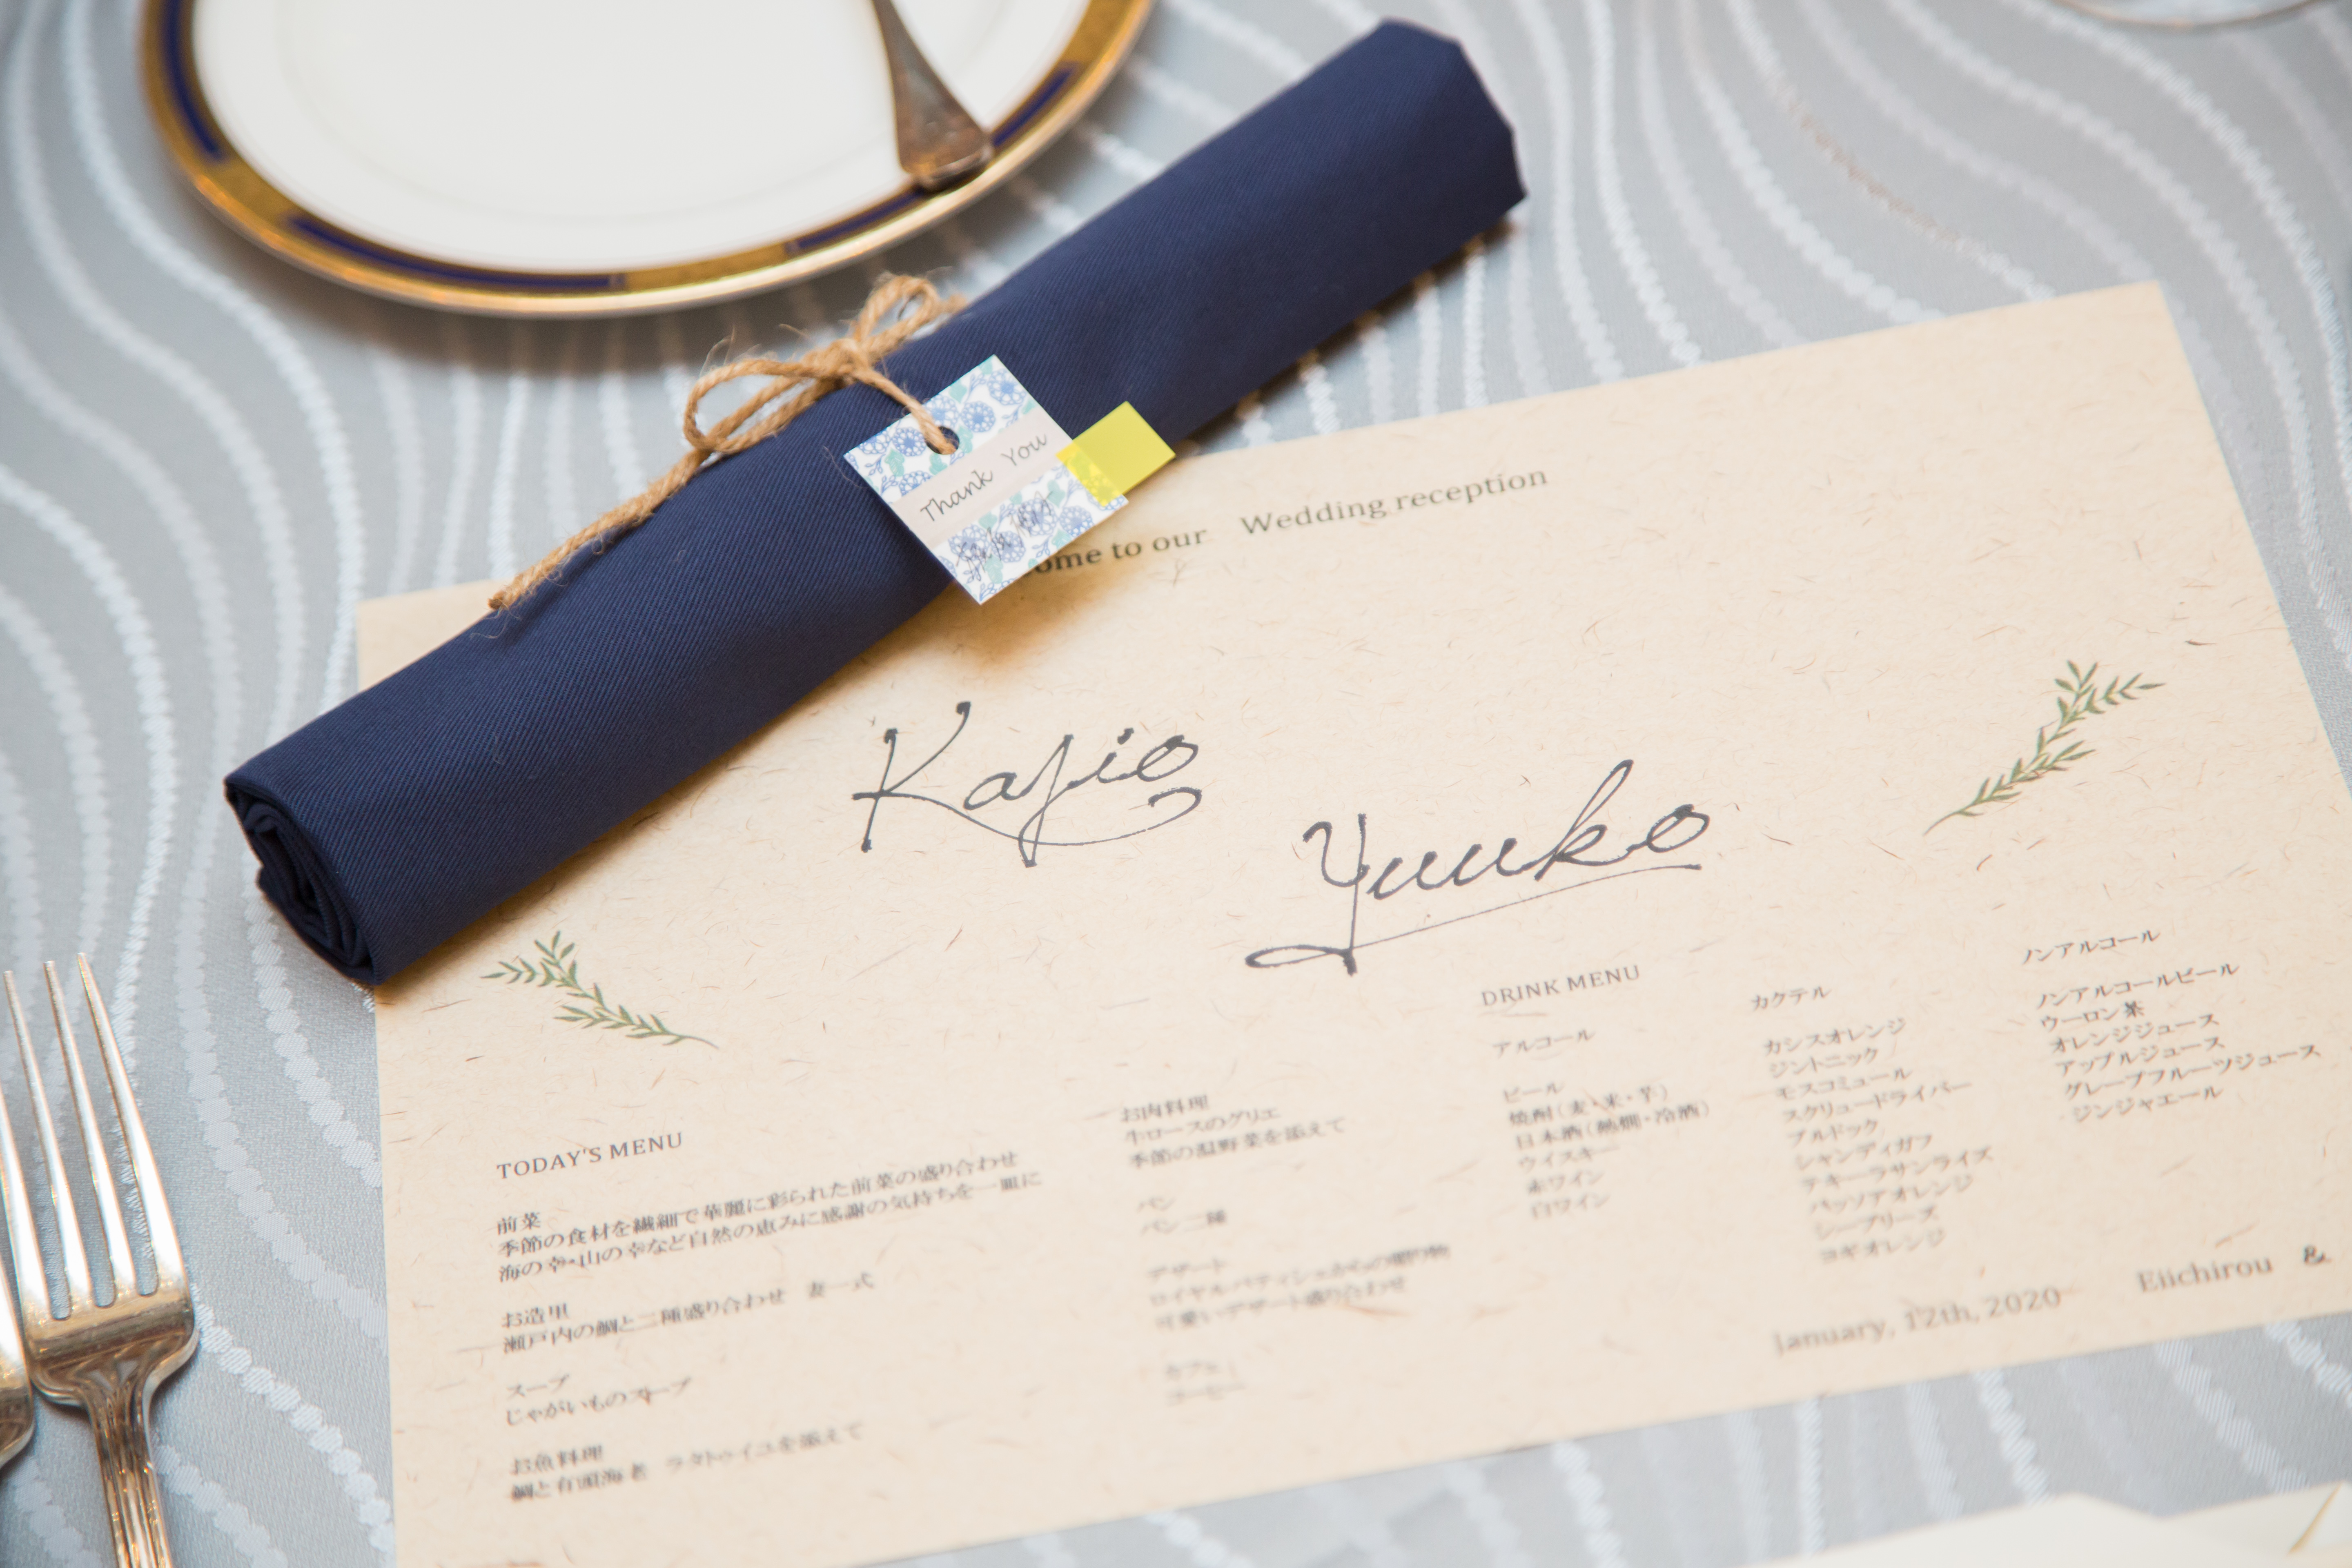 Thank You
ome to our Wedding reception
Kajio
Yuuko
TODAY'S MENU
前菜
季節の食材を繊細で華麗に彩られた前菜の盛り合わせ
海の幸・山の幸など自然の恵みに感謝の気持ちを一皿に
お造里
瀬戸内の鯛と二種盛り合わせ 妻一式
スープ
じゃがいものスープ
お魚料理
鯛と有頭海老 ラタトゥイユを添えて
お肉料理
牛ロースのグリエ
季節の温野菜を添えて
パン
パン二種
デザート
ロイヤルパティシェからの贈り物
可愛いデザート盛り合わせ
カフェ
コーヒー
DRINK MENU
アルコール
ビール
焼酎(麦・米・芋)
日本酒(熱燗・冷酒)
ウイスキー
赤ワイン
白ワイン
カクテル
カシスオレンジ
ジントニック
モスコミュール
スクリュードライバー
ブルドック
シャンディガフ
テキーラサンライズ
パッソアオレンジ
シーブリーズ
コギオレンジ
ノンアルコール
ノンアルコールビール
ウーロン茶
オレンジジュース
アップルジュース
グレープフルーツジュース
ジンジャエール
January, 12th, 2020 Eiichirou &